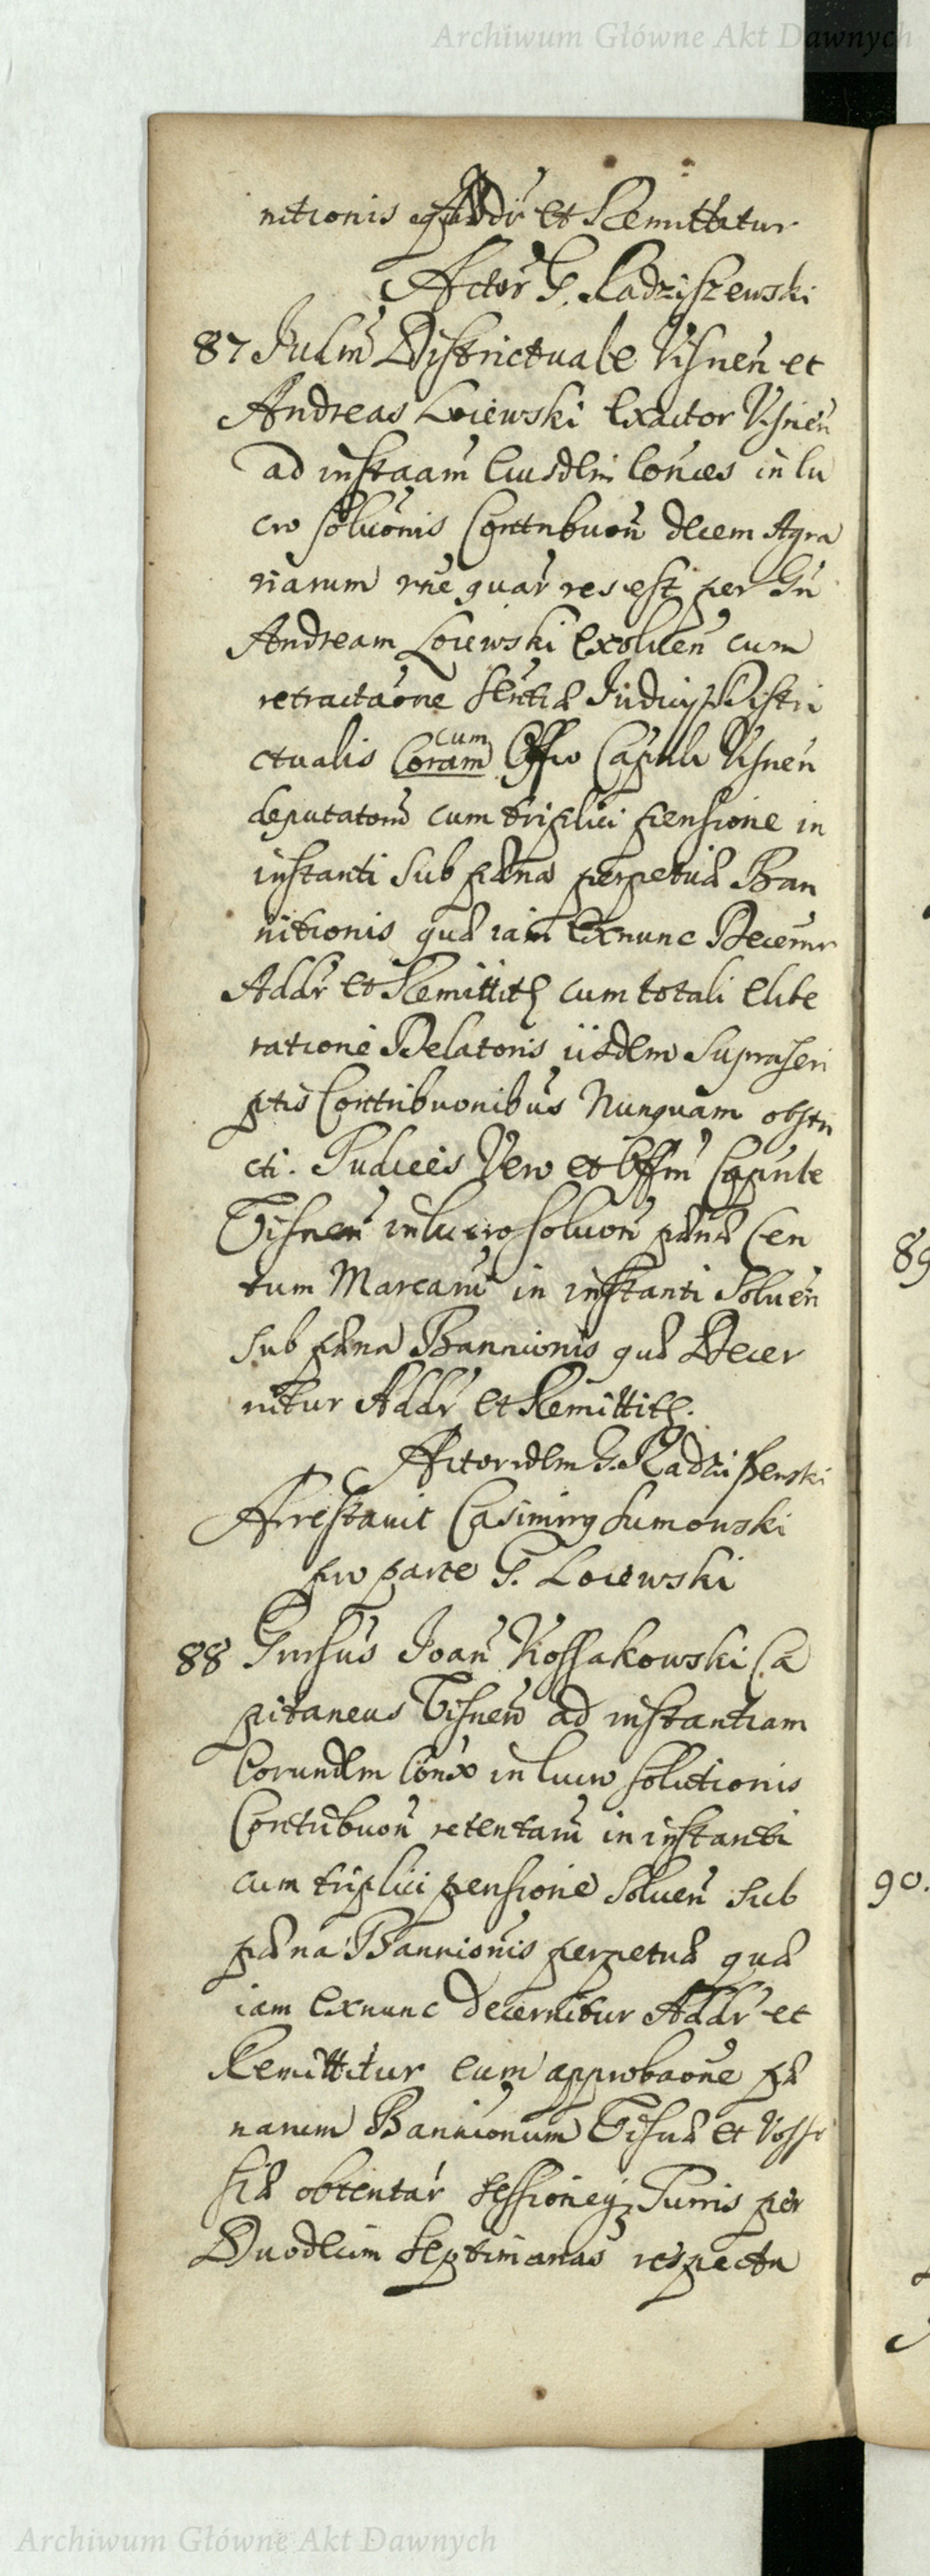 Archiwum Główne Akt Dawnych
nitionis Addr et Remittitur
Actor G. Radziszewski
87 Judm Districtuale Visnen et
Andreas Loiewski Exactor Visnen
ad instaam Eiusdem Conces in lu
cro solvonis Contribuon decem Agra
riarum rne quar res est per Gn
Andream Loiewski Exolven cum
retractaone Sentiæ Judicij Distri
ctualis Coram cum Offio Capnli Visnen
deputatorum cum triplici pensione in
instanti sub pæna perpetuæ Ban
nitionis quæ iam Exnunc Decernr
Addr et Remittitq cum totali Elibe
ratione Delatoris iisdem Suprascri
ptis Contribuonibus Nunquam obstri
cti. Judices Vero et Offm Capnle
Visnen in lucro solvon pænæ Cen
tum Marcarum in instanti Solven
sub pæna Bannionis quæ Decer
nitur Addr et Remittitq.
Actor idem G. Radziszewski
Arrestavit Casimirg Sumowski
pro parte G. Loiewski
88 Gnrsus Joan Kossakowski Ca
pitaneus Visnen ad instantiam
Eorundem Conx in lucro solutionis
Contribuon retentarum in instanti
cum triplici pensione Solven sub
pæna Bannionis perpetuæ quæ
iam Exnunc decernitur Addr et
Remittitur cum approbaone pæ
narum Bannionum Visnæ et
obtentar sessioneq Turris per
Duodecim Septimanas respectu
89
90.
Archiwum Główne Akt Dawnych